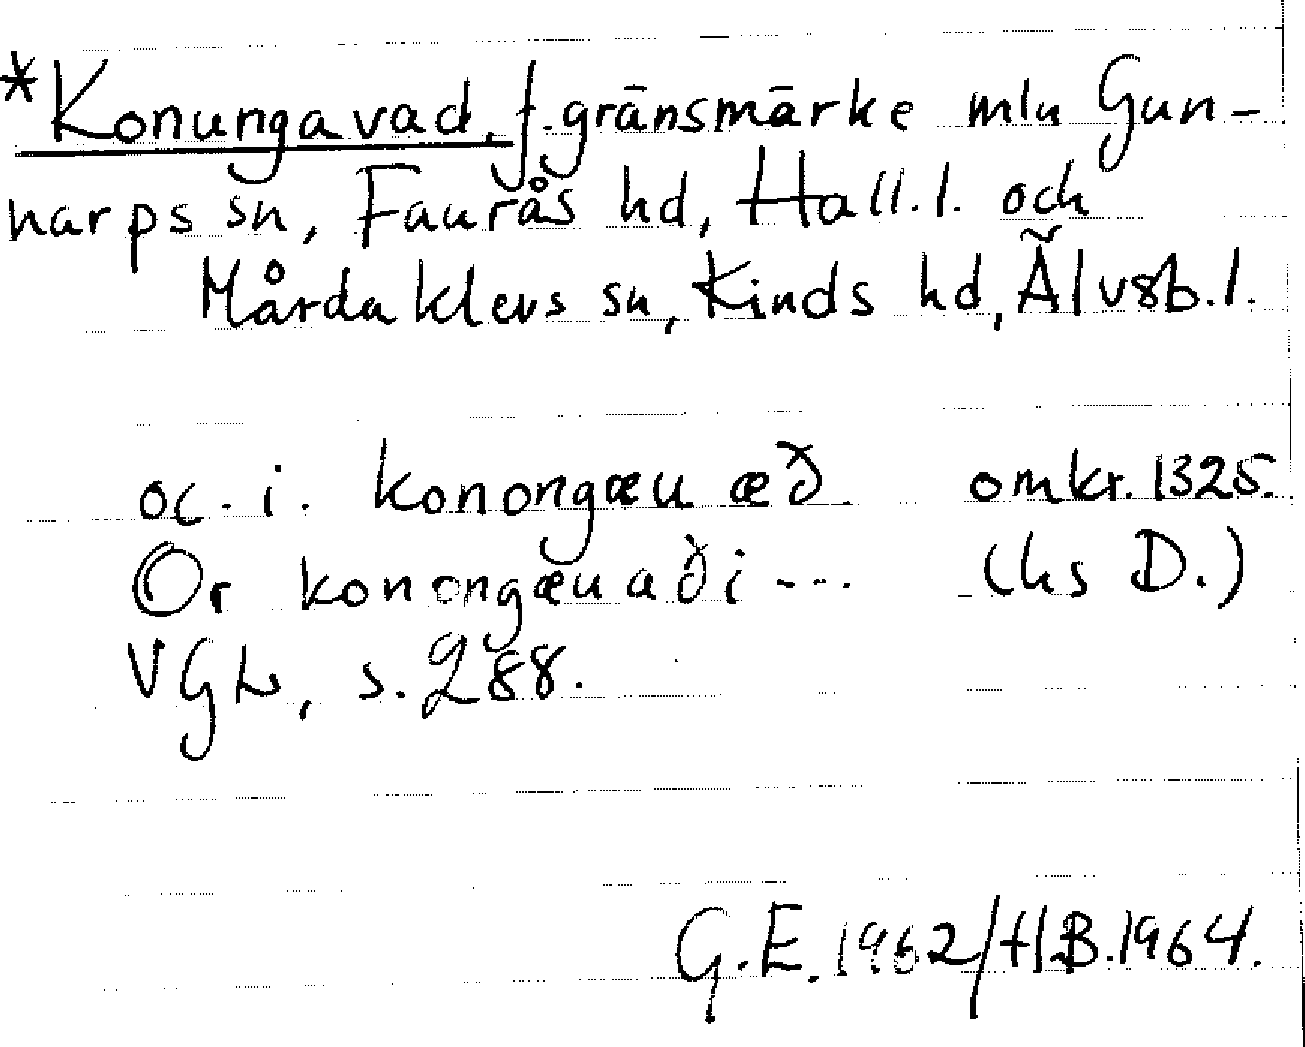 *Konungavad, f. gränsmärke mln Gun-
narps sn, Faurås hd, Hall.l. och
Mårdaklevs sn, Kinds hd, Älvsb.l.
oc. i. konongæu æð omkr. 1325.
Or konongæuaði --- (hs D.)
VGL, s. 288.
G.E. 1962/HB. 1964.